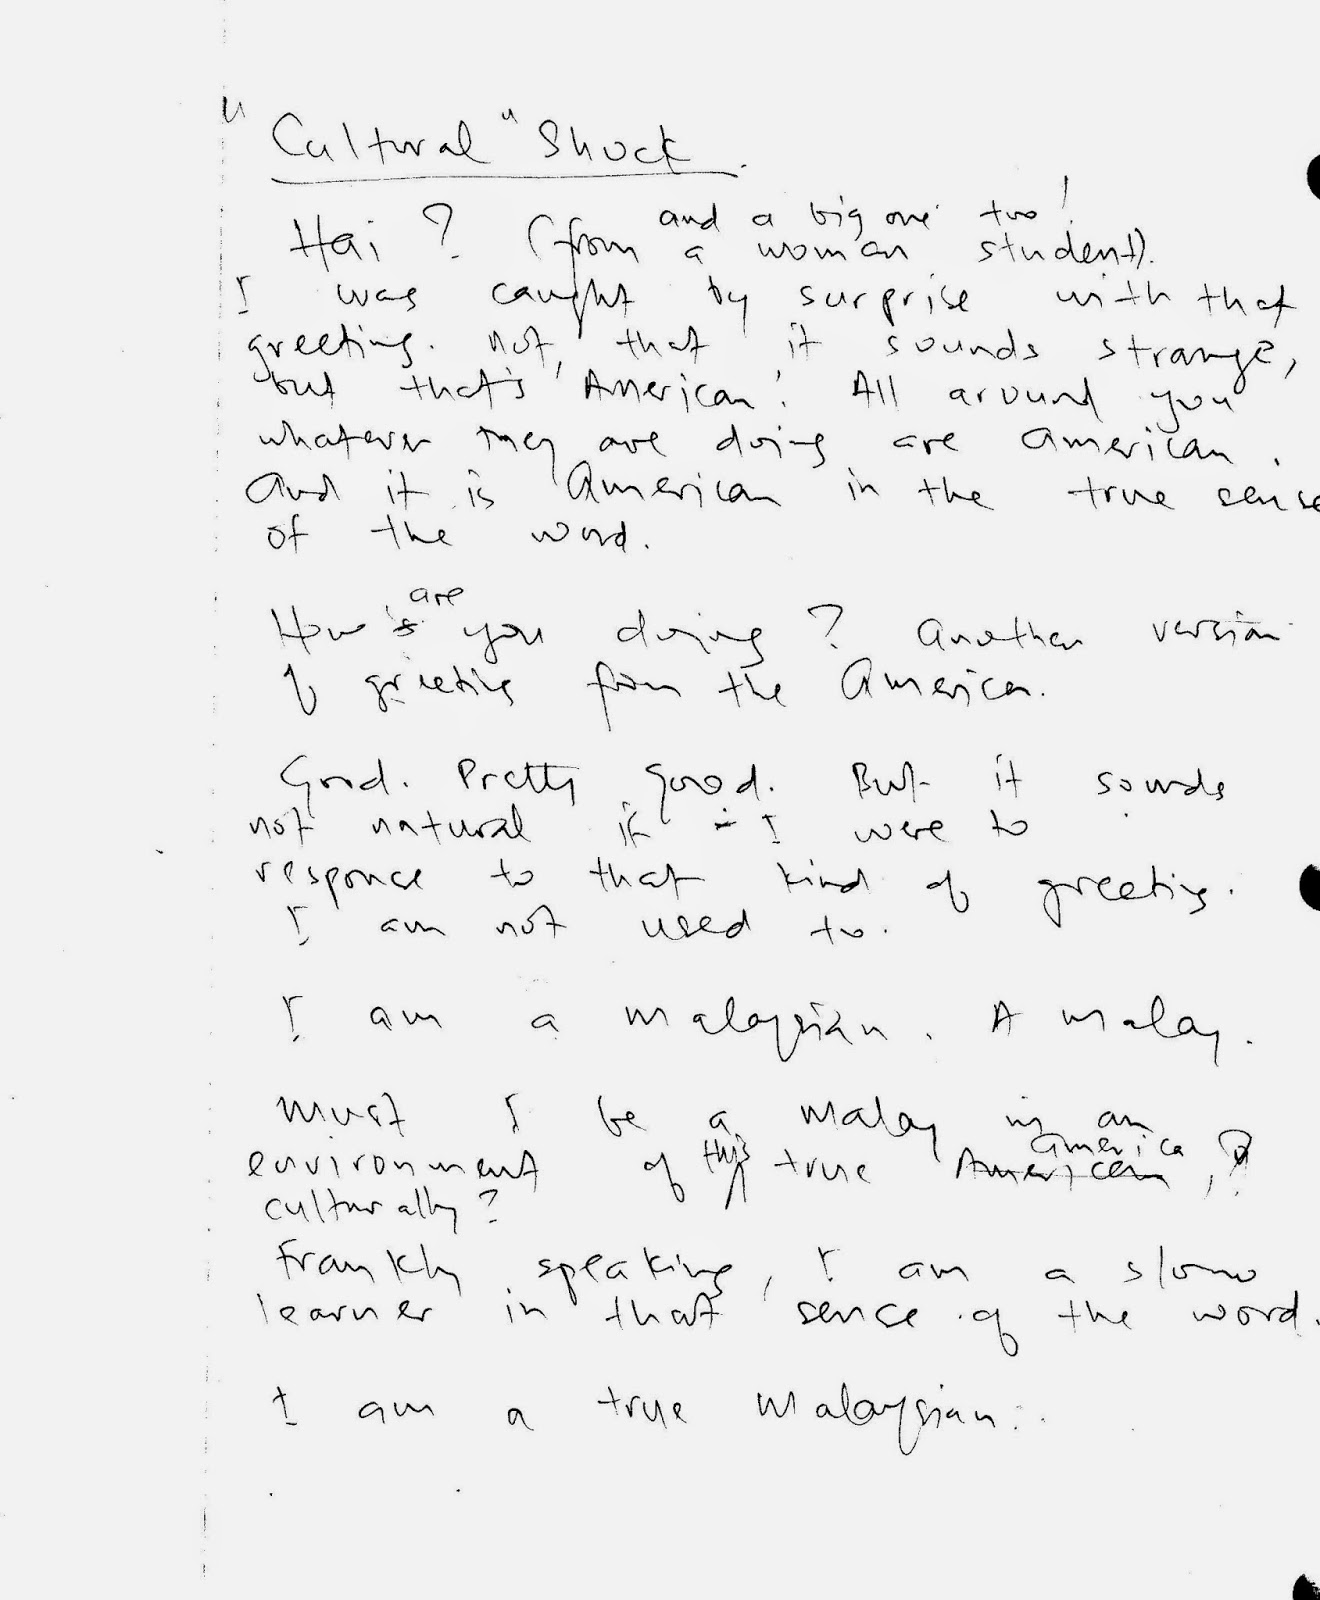 "Cultural" Shock.
and a big one too!
Hai? (from a woman student).
I was caught by surprise with that
greeting. Not that it sounds strange,
but that's 'American'. All around you
whatever they are doing are American.
And it is American in the true sense
of the word.
are
How's you doing? Another version
of greeting from the American.
Good. Pretty good. But it sounds
not natural if I were to
response to that kind of greeting.
I am not used to.
I am a malaysian. A malay.
Must I be a malay in an
environment of this true American america,?
culturally?
Frankly speaking, I am a slow
learner in that sense of the word.
I am a true malaysian.